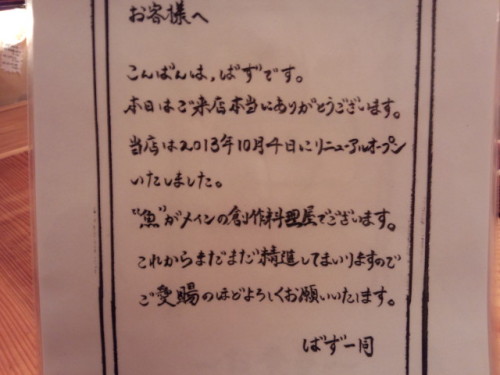 お客様へ
こんばんは,ばずです。
本日はご来店本当にありがとうございます。
当店は2013年10月4日にリニューアルオープン
いたしました。
"魚"がメインの創作料理屋でございます。
これからまだまだ精進してまいりますので
ご愛賜のほどよろしくお願いいたします。
ばず一同